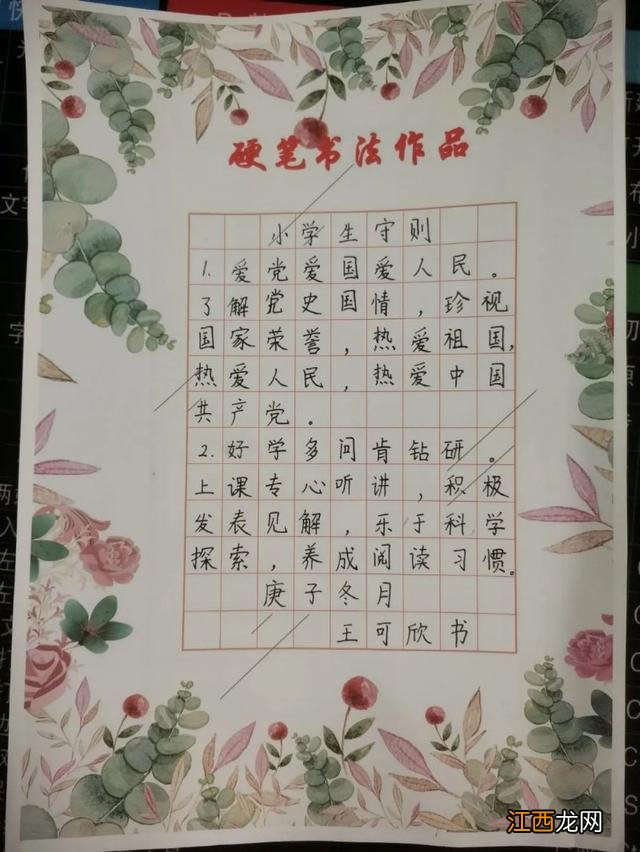 硬笔书法作品
小学生守则
1.爱党爱国爱人民。
了解党史国情，珍视
国家荣誉，热爱祖国，
热爱人民，热爱中国
共产党。
2.好学多问肯钻研。
上课专心听讲，积极
发表见解，乐于科学
探索，养成阅读习惯。
庚子冬月
王可欣书
江西龙网